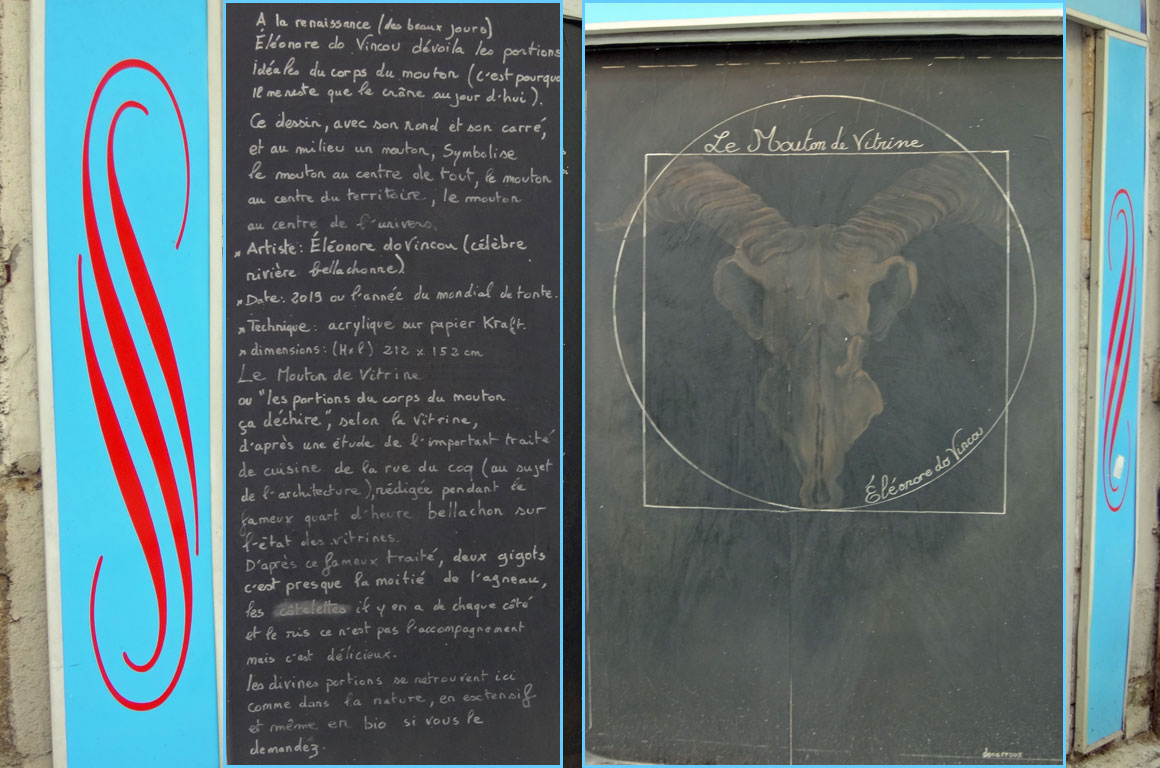 A la renaissance (des beaux jours)
Éléonore do Vincou dévoila les portions
idéales du corps du mouton (c'est pourquo
il me reste que le crâne aujour d'hui).
Ce dessin, avec son rond et son carré,
et au milieu un mouton, Symbolise
le mouton au centre de tout, le mouton
au centre du territoire, le mouton
au centre de l'univers.
* Artiste: Éléonore do Vincou (célèbre
rivière bellachonne)
* Date: 2019 ou l'année du mondial de tonte.
* Technique: acrylique sur papier Kraft.
* dimensions: (H x l) 212 x 152 cm
Le Mouton de Vitrine
ou "les portions du corps du mouton
ça déchire", selon la Vitrine,
d'après une étude de l'important traité
de cuisine de la rue du coq (au sujet
de l'architecture), rédigée pendant le
fameux quart d'heure bellachon sur
l'état des vitrines.
D'après ce fameux traité, deux gigots
c'est presque la moitié de l'agneau,
les côtelettes il y en a de chaque côté
et le ris ce n'est pas l'accompagnement
mais c'est délicieux.
les divines portions se retrouvent ici
comme dans la nature, en extensif
et même en bio si vous le
demandez.
Le Mouton de Vitrine
Éléonore do Vincou